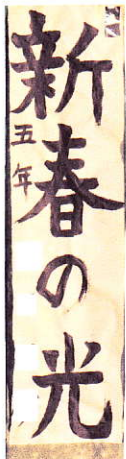 新春の光
五年